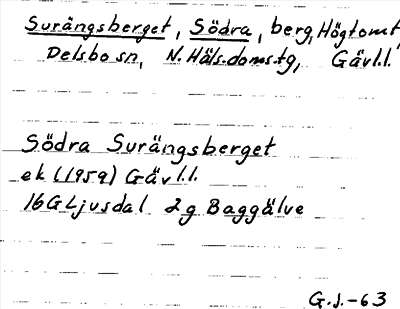 Surängsberget, Södra, berg, Högtomt,
Delsbo sn, N. Häls. doms.tg, Gävl.l.
Södra Surängsberget
ek (1959) Gävl.l.
16G Ljusdal 2g Baggälve
G.J.-63